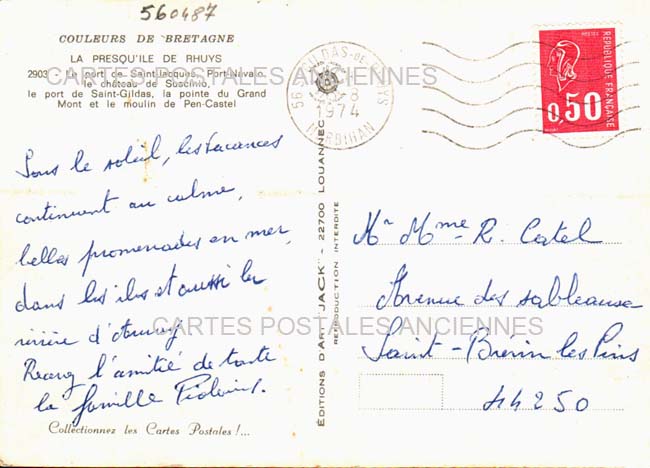 560487
COULEURS DE BRETAGNE
LA PRESQU'ILE DE RHUYS
2903 - Le port de Saint-Jacques, Port-Navalo,
le château de Suscinio,
le port de Saint-Gildas, la pointe du Grand
Mont et le moulin de Pen-Castel
CARTES POSTALES ANCIENNES
Sous le soleil, les vacances
continuent au calme,
belles promenades en mer,
dans les iles et aussi la
rivière d'Auray
Recevez l'amitié de toute
la famille
Collectionnez les Cartes Postales !...
ÉDITIONS D'ART "JACK" - 22700 LOUANNEC
REPRODUCTION INTERDITE
56 ST GILDAS-DE-RHUYS
-8
1974
MORBIHAN
POSTES
RÉPUBLIQUE FRANÇAISE
0,50
Mr Mme R. Catel
Avenue des sableause
Saint-Brévin les Pins
44250
CARTES POSTALES ANCIENNES